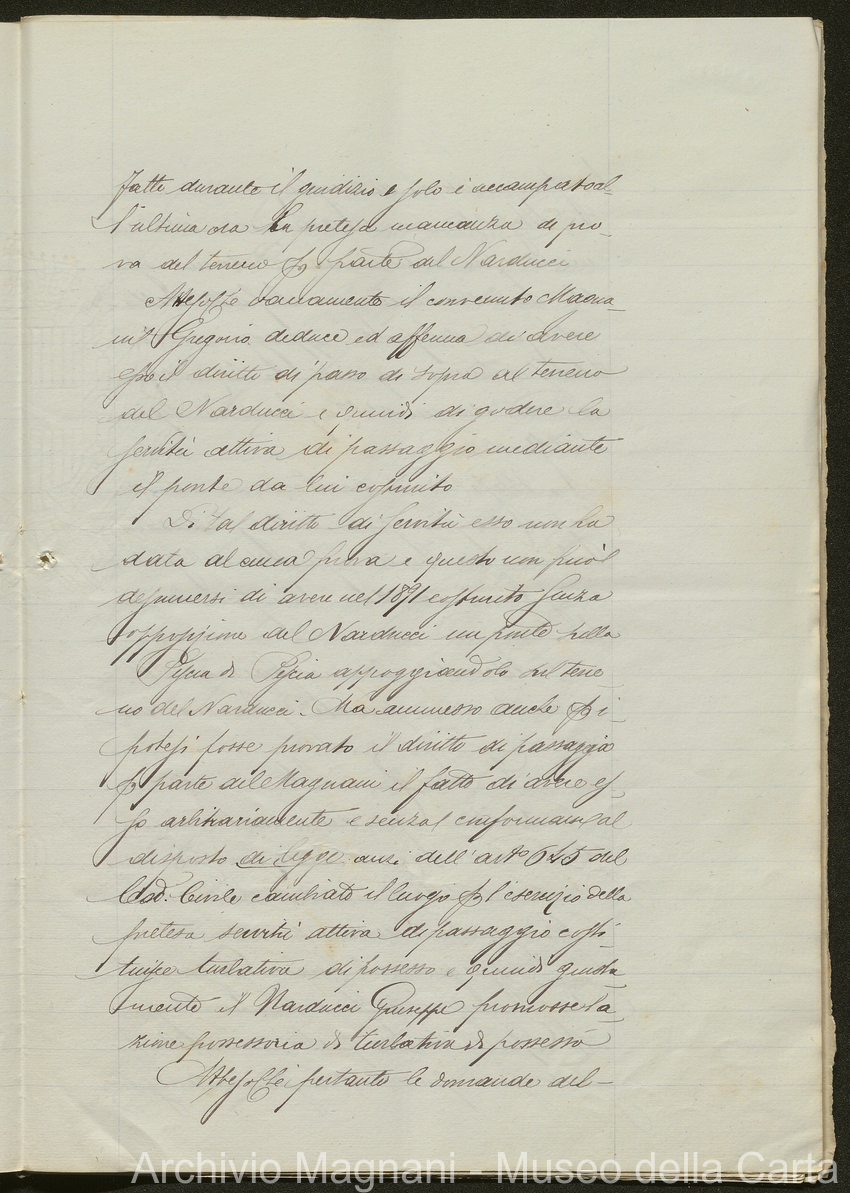 fatte durante il giudizio e solo è accampato al-
l'ultima ora la pretesa mancanza di pro-
va del terreno p parte del Narducci
Attesoché vanamente il convenuto Magna-
ni Gregorio deduce ed afferma di avere
esso il diritto di passo di sopra al terreno
del Narducci e quindi di godere la
servitù attiva di passaggio mediante
il ponte da lui costruito
Di tal diritto di servitù esso non ha
data alcuna prova e questa non può
desumersi di avere nel 1891 costruito senza
opposizione del Narducci un ponte sulla
Pescia di Pescia appoggiandolo sul terre
no del Narducci. Ma ammesso anche p i-
potesi fosse provato il diritto di passaggio
p parte del Magnani il fatto di avere es-
so arbitrariamente e senza conformarsi al
disposto di legge anzi dell'arto 645 del
Cod. Civile cambiato il luogo p l'esercizio della
pretesa servitù attiva di passaggio costi-
tuisce turbativa di possesso e quindi giusta
mente il Narducci Giuseppe promosse l'a-
zione possessoria di turbativa di possesso
Attesoché pertanto le domande del-
Archivio Magnani - Museo della Carta